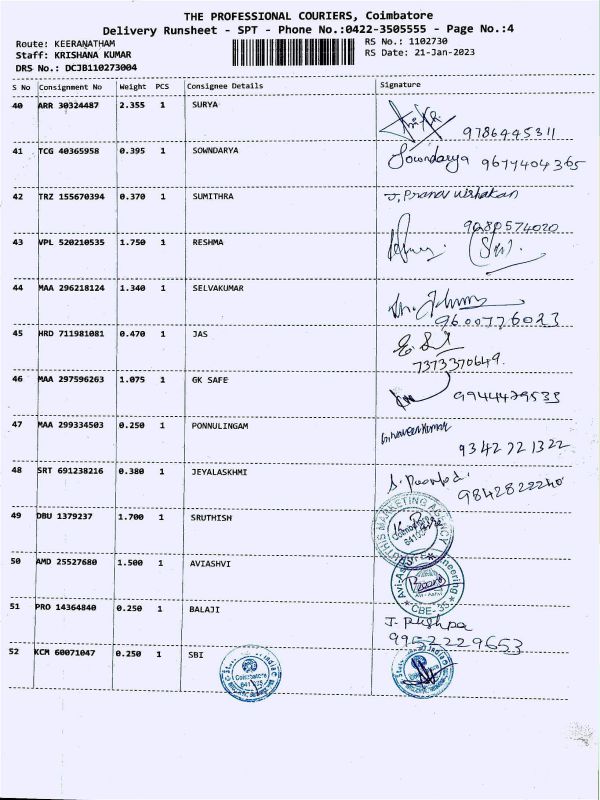 THE PROFESSIONAL COURIERS, Coimbatore
Delivery Runsheet - SPT - Phone No.:0422-3505555 - Page No.:4
Route: KEERANATHAM
RS No.: 1102730
Staff: KRISHANA KUMAR
RS Date: 21-Jan-2023
DRS No.: DCJB110273004
S No Consignment No Weight PCS Consignee Details Signature
40 ARR 30324487 2.355 1 SURYA
9786445311
41 TCG 40365958 0.395 1 SOWNDARYA Sowndarya 9677404365
42 TRZ 155670394 0.370 1 SUMITHRA J. Pranav
9680574020
43 VPL 520210535 1.750 1 RESHMA
44 MAA 296218124 1.340 1 SELVAKUMAR
9600776023
45 HRD 711981081 0.470 1 JAS
7373370649.
46 MAA 297596263 1.075 1 GK SAFE 9944479533
47 MAA 299334503 0.250 1 PONNULINGAM
9342721322
48 SRT 691238216 0.380 1 JEYALASKHMI
9842822240
49 DBU 1379237 1.700 1 SRUTHISH
MARKETING AGENCY
50 AMD 25527680 1.500 1 AVIASHVI
CBE-35
51 PRO 14364840 0.250 1 BALAJI J. Pushpa
9952229653
52 KCM 60071047 0.250 1 SBI
Coimbatore